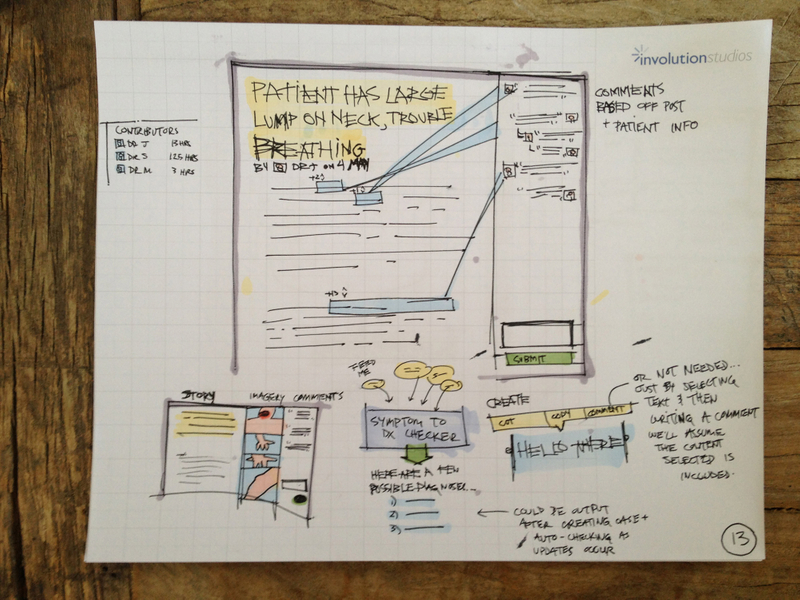 involutionstudios
PATIENT HAS LARGE
LUMP ON NECK, TROUBLE
BREATHING
BY DR J ON 4 MAY
COMMENTS
BASED OFF POST
+ PATIENT INFO
CONTRIBUTORS
DR J 13 HRS
DR S 125 HRS
DR M 3 HRS
SUBMIT
STORY
IMAGERY
COMMENTS
FEED
ME
SYMPTOM TO
DX CHECKER
HERE ARE A FEW
POSSIBLE DIAGNOSES...
1)
2)
3)
COULD BE OUTPUT
AFTER CREATING CASE +
AUTO-CHECKING AS
UPDATES OCCUR
CREATE
CUT
COPY
COMMENT
HELLO THERE
OR NOT NEEDED...
JUST BY SELECTING
TEXT & THEN
WRITING A COMMENT
WE'LL ASSUME
THE CONTENT
SELECTED IS
INCLUDED.
13